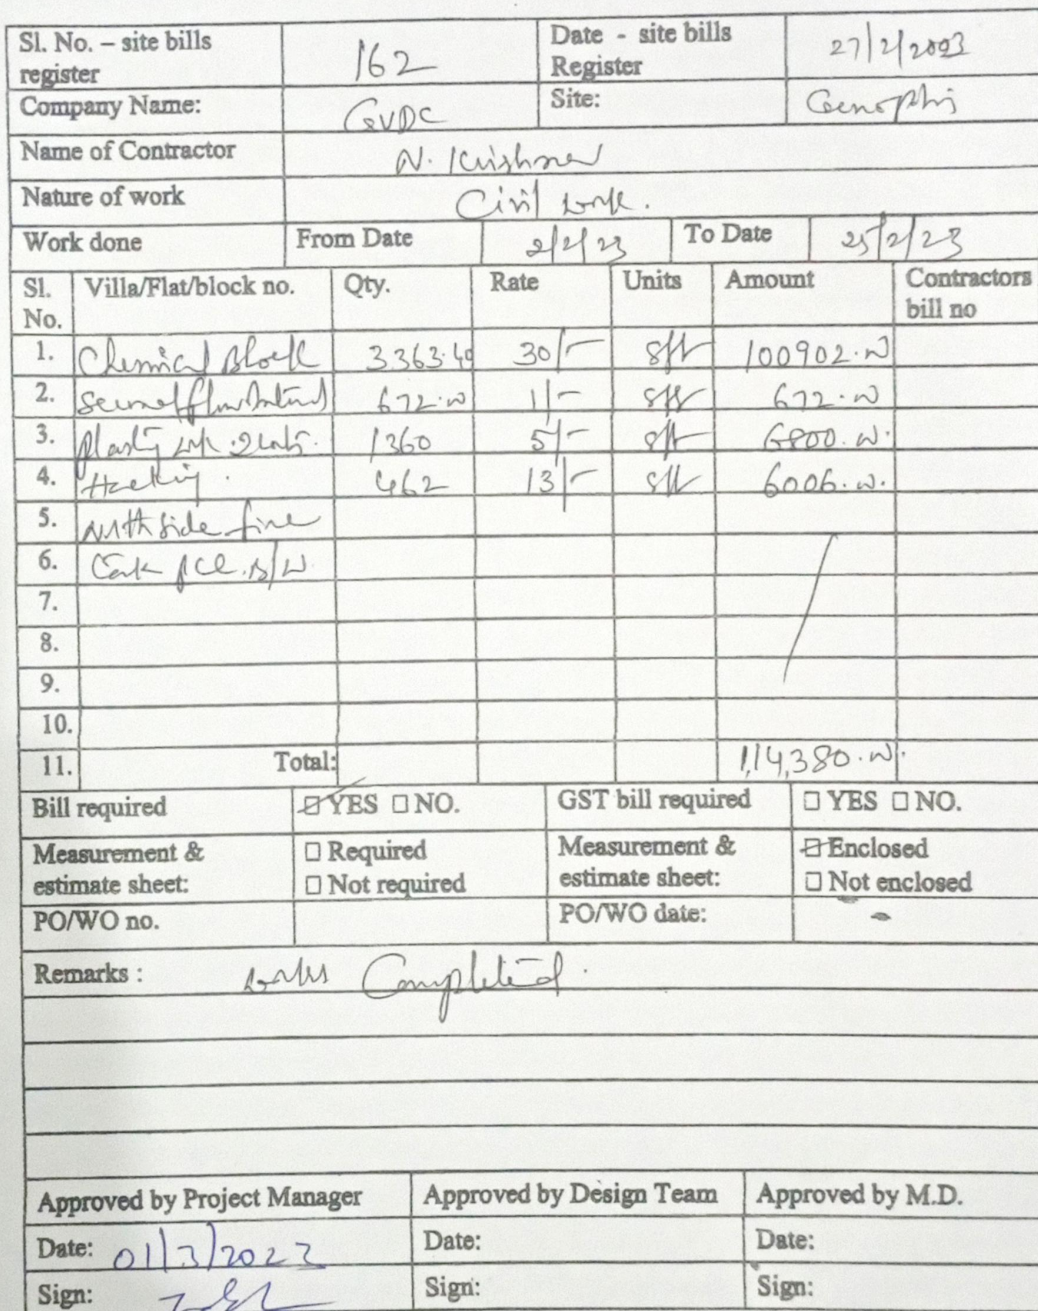 Sl. No. – site bills register 162 Date - site bills Register 27/2/2023
Company Name: GVDC Site: Genophis
Name of Contractor N. Krishna
Nature of work Civil work.
Work done From Date 2/2/23 To Date 25/2/23
Sl. No. Villa/Flat/block no. Qty. Rate Units Amount Contractors bill no
1. Chemical Block 3363.40 30/- sft 100902.00
2. 672.00 1/- sft 672.00
3. 1360 5/- sft 6800.00
4. Hacking. 462 13/- sft 6006.00
5. North side fire
6.
7.
8.
9.
10.
11. Total: 1,14,380.00
Bill required ☑ YES ☐ NO. GST bill required ☐ YES ☐ NO.
Measurement & estimate sheet: ☐ Required ☐ Not required Measurement & estimate sheet: ☑ Enclosed ☐ Not enclosed
PO/WO no. PO/WO date: -
Remarks : works Completed.
Approved by Project Manager Approved by Design Team Approved by M.D.
Date: 01/3/2023 Date: Date:
Sign: Sign: Sign: